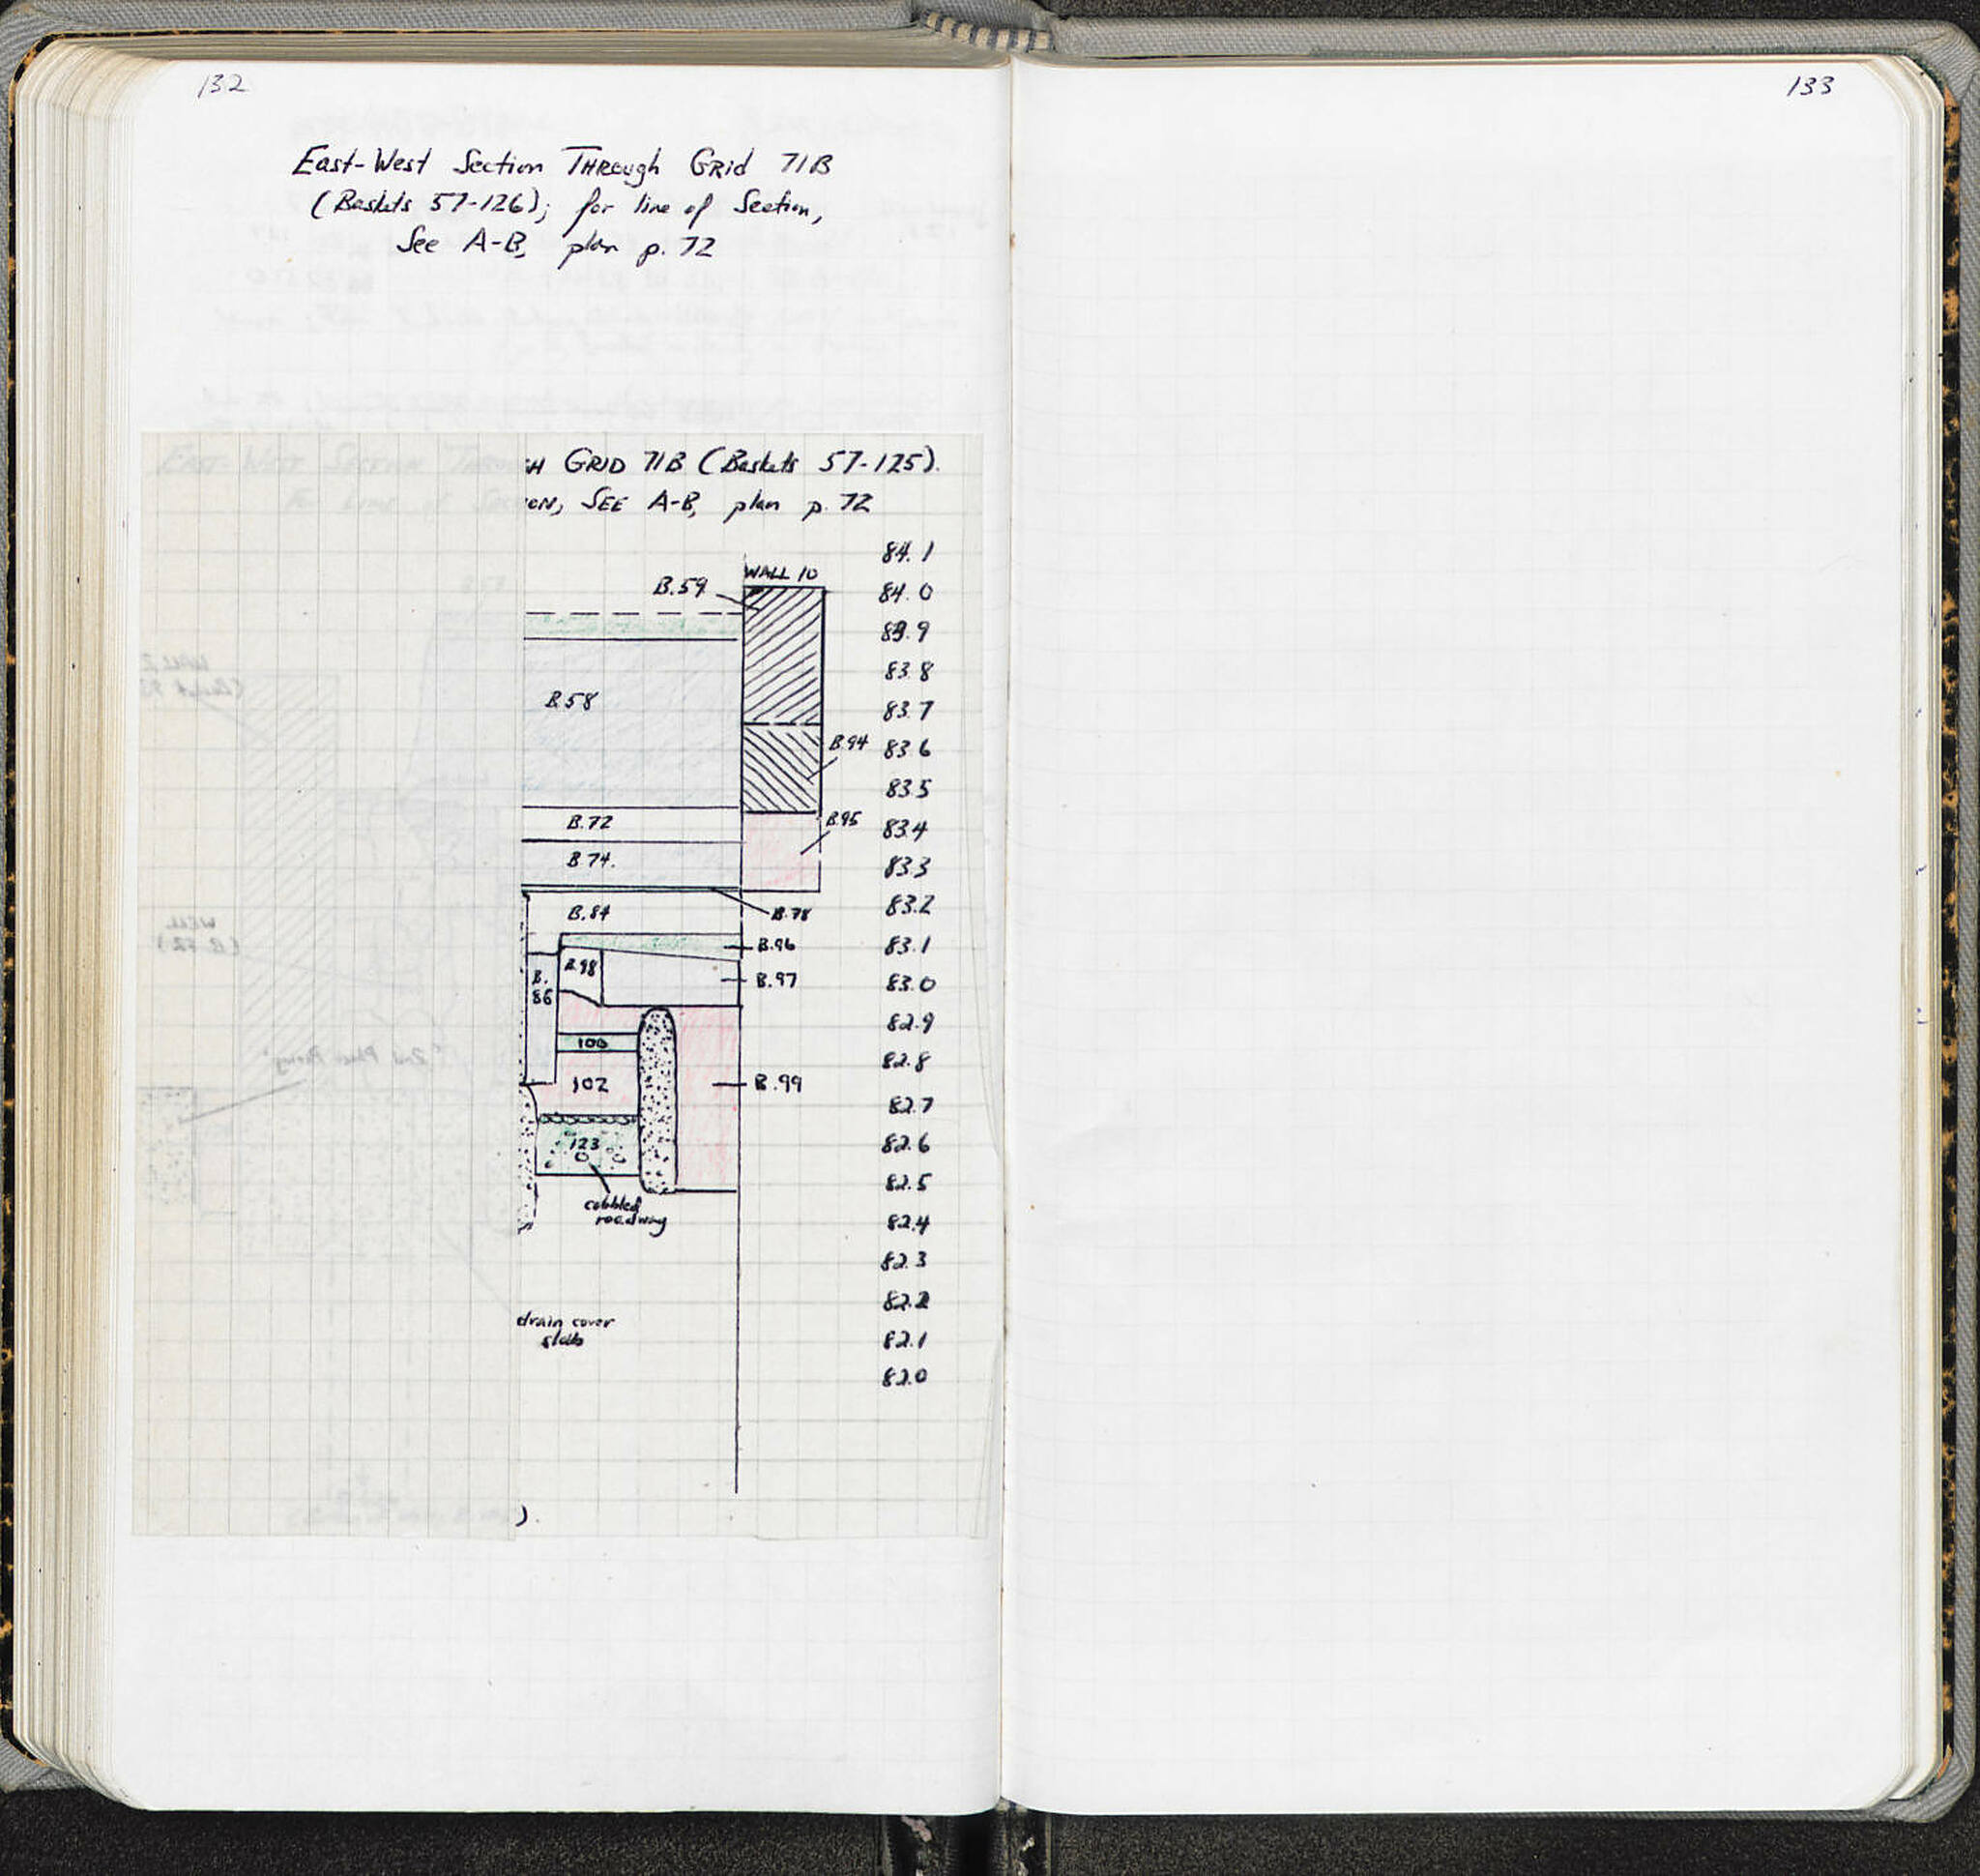 132
133
East-West Section Through Grid 71B
(Baskets 57-126); for line of Section,
See A-B, plan p. 72
EAST-WEST SECTION THROUGH GRID 71B (Baskets 57-125).
For LINE of SECTION, SEE A-B, plan p. 72
84.1
WALL 10
B.59
84.0
83.9
83.8
B.58
83.7
B.94
83.6
83.5
B.72
B.95
83.4
B 74.
83.3
B.84
B.78
83.2
B.96
83.1
B.98
B.
86
B.97
83.0
82.9
100
82.8
102
B.99
82.7
123
82.6
82.5
cobbled
roadway
82.4
82.3
82.2
drain cover
slab
82.1
82.0
).